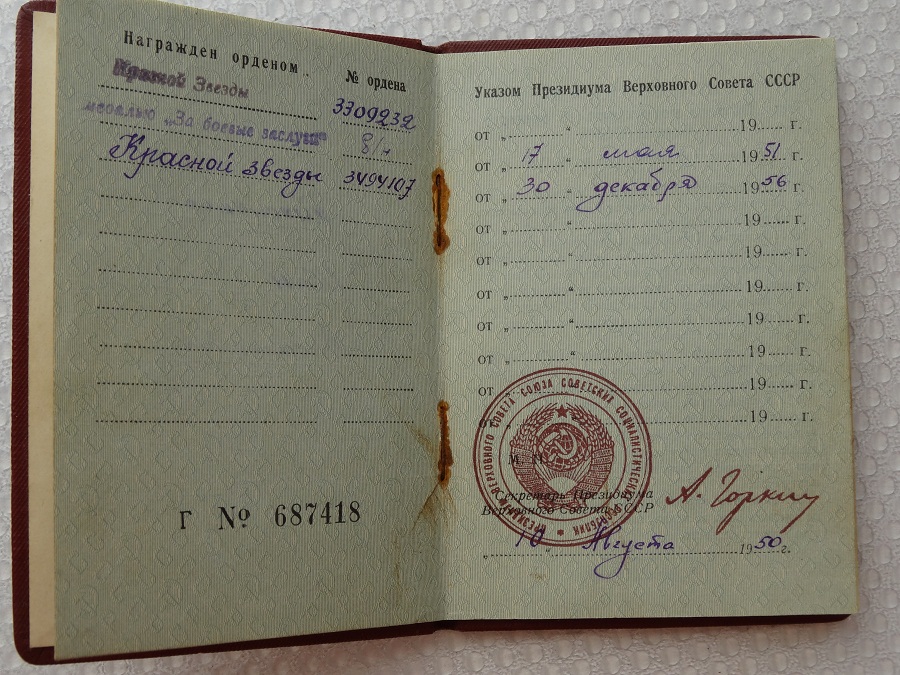 Награжден орденом
№ ордена
Красной Звезды 3309232
медалью „За боевые заслуги“ б/н
Красной звезды 3494107
Г № 687418
Указом Президиума Верховного Совета СССР
от „ “ 19 г.
от „ 17 “ мая 1951 г.
от „ 30 “ декабря 1956 г.
от „ “ 19 г.
от „ “ 19 г.
от „ “ 19 г.
от „ “ 19 г.
от „ “ 19 г.
от „ “ 19 г.
от „ 19 г.
ПРЕЗИДИУМ ВЕРХОВНОГО СОВЕТА СОЮЗА СОВЕТСКИХ СОЦИАЛИСТИЧЕСКИХ РЕСПУБЛИК
М. П.
Секретарь Президиума
Верховного Совета СССР
А. Горкин
„ 10 “ Августа 1950 г.